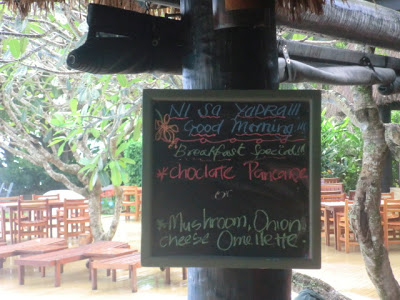 NI SA YADRA!!!
Good Morning!!!
Breakfast Special!!!
* CHOCLATE PANCAKE
or
* Mushroom, Onion
cheese Omellette.